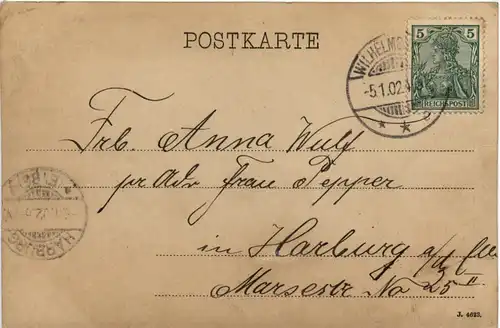 POSTKARTE
5 5
REICHSPOST
WILHELMS
-5.1.02.
Frb. Anna Wulf
pr Adr Frau Pepper
in Harburg a/
Marsestr No 25 II
HARBURG
(ELBE)
J. 4623.